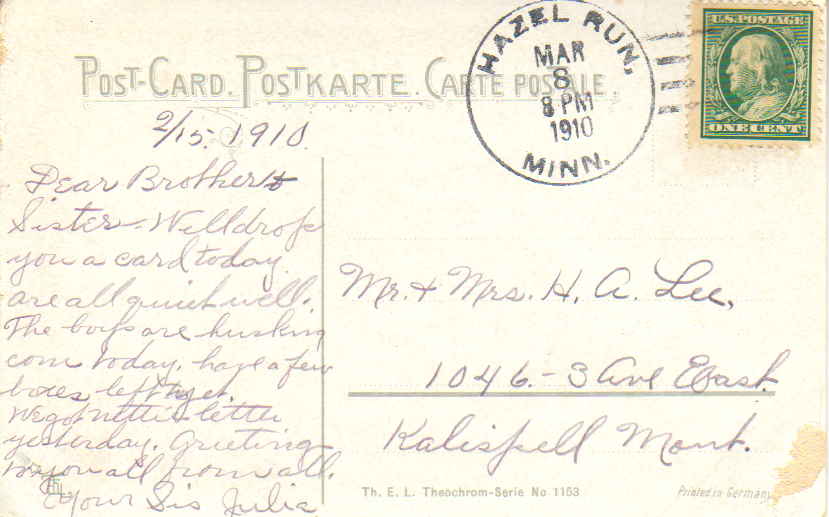 POST-CARD. POSTKARTE. CARTE POSTALE.
HAZEL RUN,
MAR
8
8 PM
1910
MINN.
U.S. POSTAGE
ONE CENT
2/15. 1910.
Dear Brother &
Sister - Will drop
you a card today.
are all quiet well.
The boys are husking
corn today, have a few
boxes left yet.
We got Nettie letter
yesterday. Greeting
to you all from all.
Your Sis Julia
Mr. & Mrs. H. A. Lee,
1046. - 3 Ave East.
Kalispell Mont.
Th. E. L. Theochrom-Serie No 1153
Printed in Germany